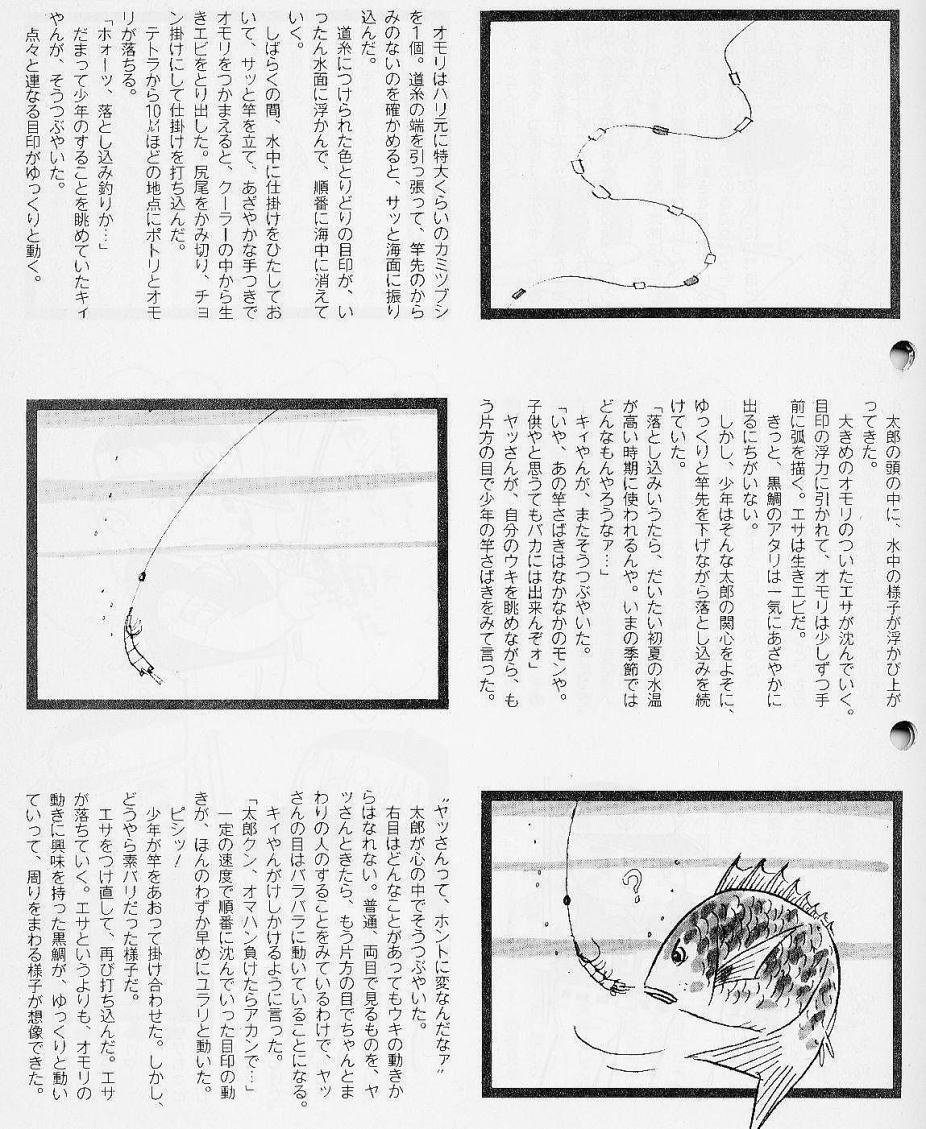 オモリはハリ元に特大くらいのカミツブシ
を1個。道糸の端を引っ張って、竿先のから
みのないのを確かめると、サッと海面に振り
込んだ。
道糸につけられた色とりどりの目印が、い
ったん水面に浮かんで、順番に海中に消えて
いく。
しばらくの間、水中に仕掛けをひたしてお
いて、サッと竿を立て、あざやかな手つきで
オモリをつかまえると、クーラーの中から生
きエビをとり出した。尻尾をかみ切り、チョ
ン掛けにして仕掛けを打ち込んだ。
テトラから10㍍ほどの地点にポトリとオモ
リが落ちる。
「ホォーッ、落とし込み釣りか…」
だまって少年のすることを眺めていたキィ
やんが、そうつぶやいた。
点々と連なる目印がゆっくりと動く。
太郎の頭の中に、水中の様子が浮かび上が
ってきた。
大きめのオモリのついたエサが沈んでいく。
目印の浮力に引かれて、オモリは少しずつ手
前に弧を描く。エサは生きエビだ。
きっと、黒鯛のアタリは一気にあざやかに
出るにちがいない。
しかし、少年はそんな太郎の関心をよそに、
ゆっくりと竿先を下げながら落とし込みを続
けていた。
「落とし込みいうたら、だいたい初夏の水温
が高い時期に使われるんや。いまの季節では
どんなもんやろうなァ…」
キィやんが、またそうつぶやいた。
「いや、あの竿さばきはなかなかのモンや。
子供やと思うてもバカには出来んぞォ」
ヤッさんが、自分のウキを眺めながら、も
う片方の目で少年の竿さばきをみて言った。
〝ヤッさんって、ホントに変なんだなァ〟
太郎が心の中でそうつぶやいた。
右目はどんなことがあってもウキの動きか
らはなれない。普通、両目で見るものを、ヤ
ッさんときたら、もう片方の目でちゃんとま
わりの人のすることをみているわけで、ヤッ
さんの目はバラバラに動いていることになる。
キィやんがけしかけるように言った。
「太郎クン、オマハン負けたらアカンで…」
一定の速度で順番に沈んでいった目印の動
きが、ほんのわずか早めにユラリと動いた。
ピシッ!
少年が竿をあおって掛け合わせた。しかし、
どうやら素バリだった様子だ。
エサをつけ直して、再び打ち込んだ。エサ
が落ちていく。エサというよりも、オモリの
動きに興味を持った黒鯛が、ゆっくりと動い
ていって、周りをまわる様子が想像できた。